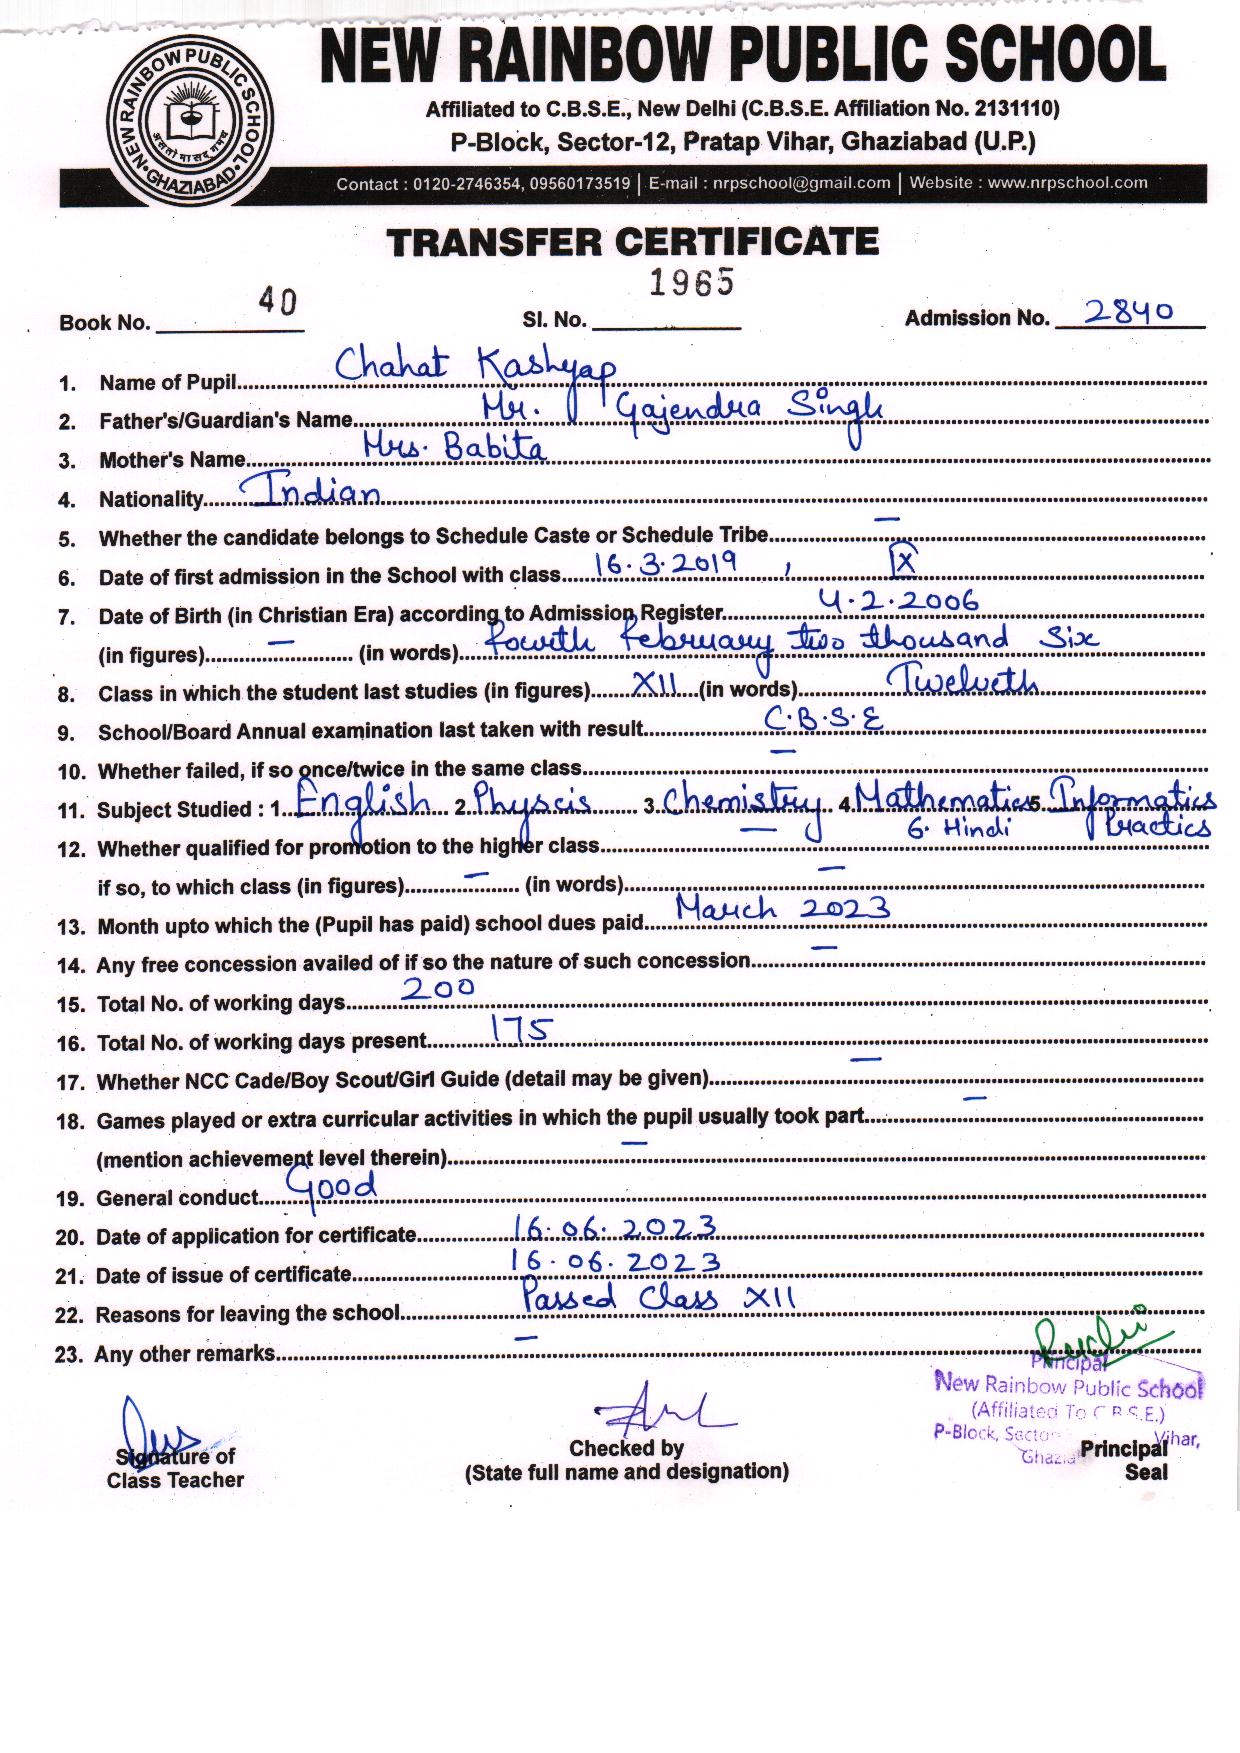 NEW RAINBOW PUBLIC SCHOOL
NEW RAINBOW PUBLIC SCHOOL
GHAZIABAD
असतो मा सद् गमय
Affiliated to C.B.S.E., New Delhi (C.B.S.E. Affiliation No. 2131110)
P-Block, Sector-12, Pratap Vihar, Ghaziabad (U.P.)
Contact : 0120-2746354, 09560173519 | E-mail : nrpschool@gmail.com | Website : www.nrpschool.com
TRANSFER CERTIFICATE
Book No. 40 Sl. No. 1965 Admission No. 2840
1. Name of Pupil Chahat Kashyap
2. Father's/Guardian's Name Mr. Gajendra Singh
3. Mother's Name Mrs. Babita
4. Nationality Indian
5. Whether the candidate belongs to Schedule Caste or Schedule Tribe —
6. Date of first admission in the School with class 16.3.2019 , IX
7. Date of Birth (in Christian Era) according to Admission Register 4.2.2006
(in figures) — (in words) Fourth February two thousand Six
8. Class in which the student last studies (in figures) XII (in words) Twelveth
9. School/Board Annual examination last taken with result C.B.S.E
10. Whether failed, if so once/twice in the same class —
11. Subject Studied : 1. English 2. Physcis 3. Chemistry 4. Mathematics 5. Informatics
6. Hindi Practics
12. Whether qualified for promotion to the higher class —
if so, to which class (in figures) — (in words) —
13. Month upto which the (Pupil has paid) school dues paid March 2023
14. Any free concession availed of if so the nature of such concession —
15. Total No. of working days 200
16. Total No. of working days present 175
17. Whether NCC Cade/Boy Scout/Girl Guide (detail may be given) —
18. Games played or extra curricular activities in which the pupil usually took part —
(mention achievement level therein) —
19. General conduct Good
20. Date of application for certificate 16.06.2023
21. Date of issue of certificate 16.06.2023
22. Reasons for leaving the school Passed Class XII
23. Any other remarks —
Principal
New Rainbow Public School
(Affiliated To C.B.S.E.)
P-Block, Vihar,
Signature of
Class Teacher
Checked by
(State full name and designation)
Principal
Seal